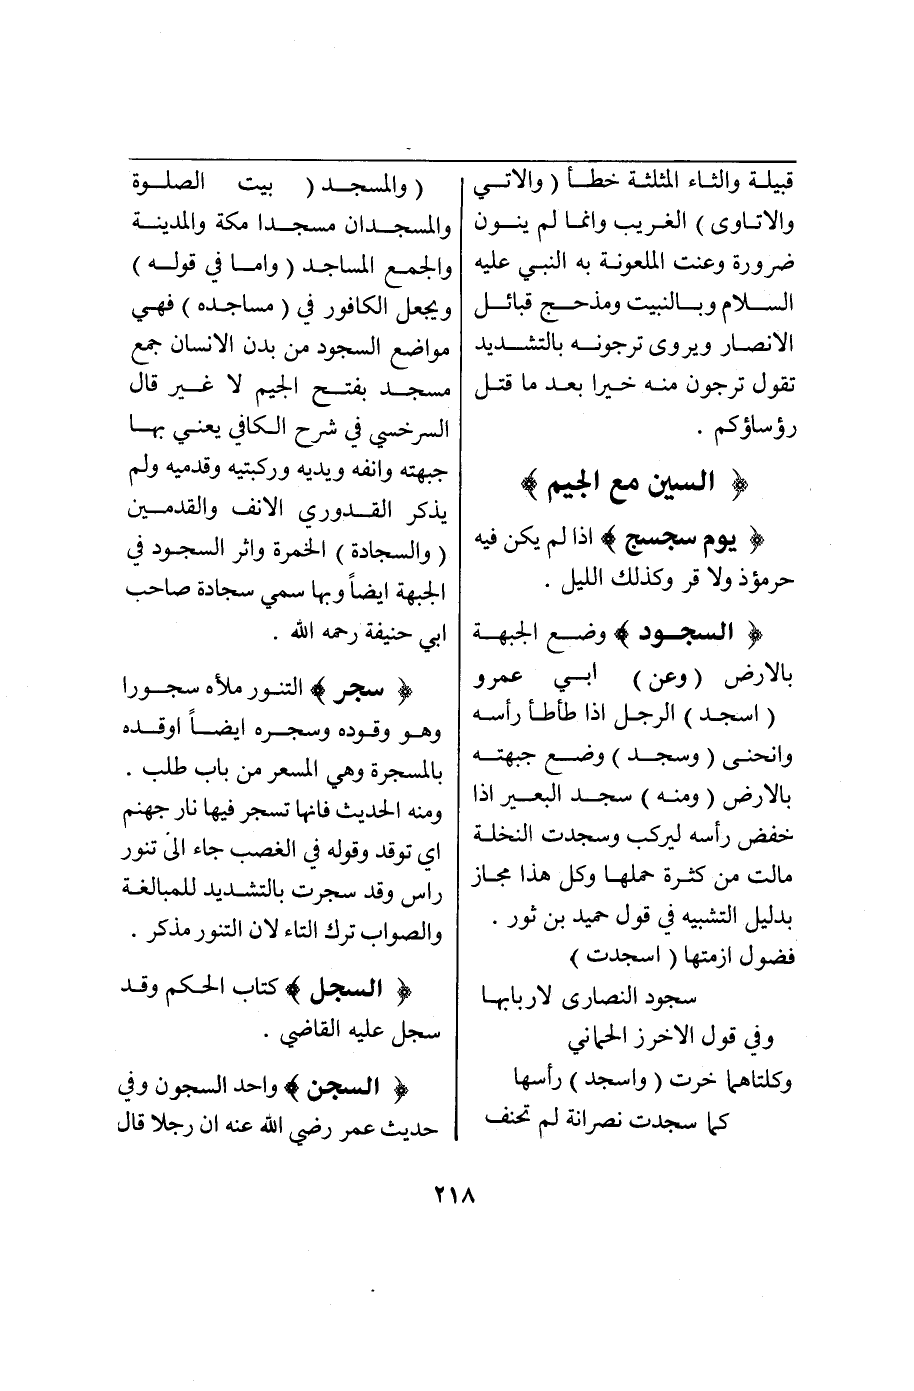 قبيلة والثاء المثلثة خطأ ( والاتي
والاتاوى ) الغريب وانما لم ينون
ضرورة وعنت الملعونة به النبي عليه
السلام وبالنبيت ومذحج قبائل
الانصار ويروى ترجونه بالتشديد
تقول ترجون منه خيرا بعد ما قتل
رؤساؤكم .
﴿ السين مع الجيم ﴾
﴿ يوم سجسج ﴾ اذا لم يكن فيه
حرمؤذ ولا قر وكذلك الليل .
﴿ السجود ﴾ وضع الجبهة
بالارض ( وعن ) ابي عمرو
( اسجد ) الرجل اذا طأطأ رأسه
وانحنى ( وسجد ) وضع جبهته
بالارض ( ومنه ) سجد البعير اذا
خفض رأسه ليركب وسجدت النخلة
مالت من كثرة حملها وكل هذا مجاز
بدليل التشبيه في قول حميد بن ثور .
فضول ازمتها ( اسجدت )
سجود النصارى لاربابها
وفي قول الاخرز الحماني
وكلتاهما خرت ( واسجد ) رأسها
كما سجدت نصرانة لم تحنف
( والمسجد ( بيت الصلوة
والمسجدان مسجدا مكة والمدينة
والجمع المساجد ( واما في قوله )
ويجعل الكافور في ( مساجده ) فهي
مواضع السجود من بدن الانسان جمع
مسجد بفتح الجيم لا غير قال
السرخسي في شرح الكافي يعني بها
جبهته وانفه ويديه وركبتيه وقدميه ولم
يذكر القدوري الانف والقدمين
( والسجادة ) الخمرة واثر السجود في
الجبهة ايضاً وبها سمي سجادة صاحب
ابي حنيفة رحمه الله .
﴿ سجر ﴾ التنور ملأه سجورا
وهو وقوده وسجره ايضاً اوقده
بالمسجرة وهي المسعر من باب طلب .
ومنه الحديث فانها تسجر فيها نار جهنم
اي توقد وقوله في الغصب جاء الى تنور
راس وقد سجرت بالتشديد للمبالغة
والصواب ترك التاء لان التنور مذكر .
﴿ السجل ﴾ كتاب الحكم وقد
سجل عليه القاضي .
﴿ السجن ﴾ واحد السجون وفي
حديث عمر رضي الله عنه ان رجلا قال
٢١٨